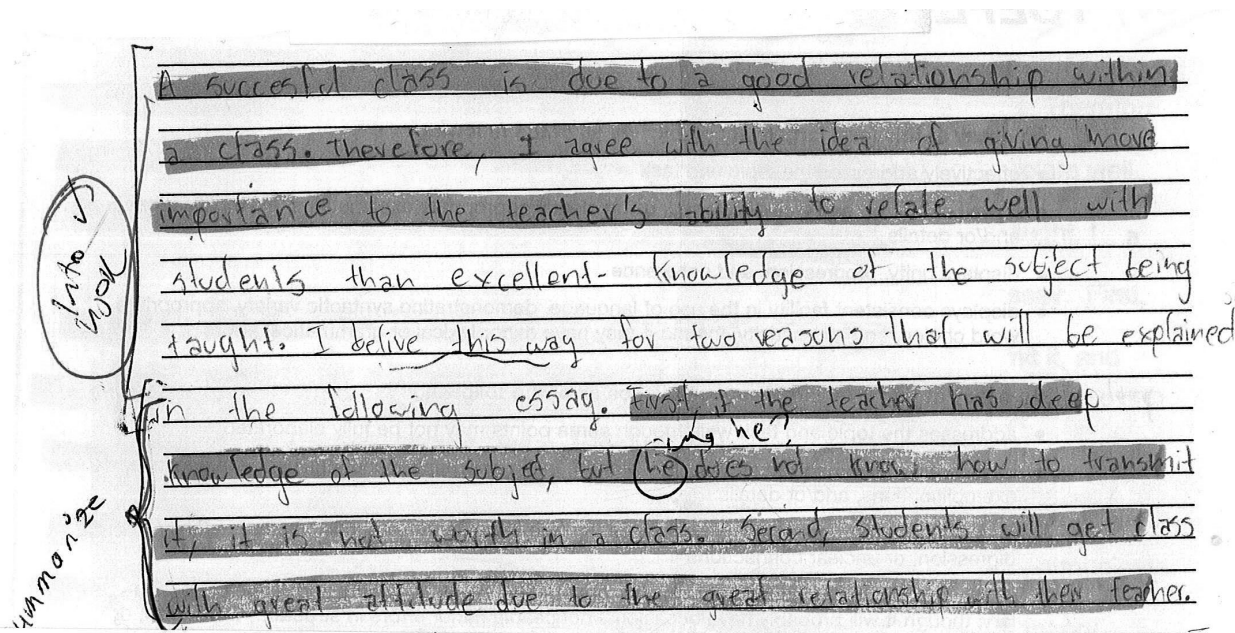 A succesful class is due to a good relationship within
a class. Therefore, I agree with the idea of giving more
importance to the teacher's ability to relate well with
students than excellent knowledge of the subject being
taught. I belive this way for two reasons that will be explained
in the following essay. First, if the teacher has deep
he?
knowledge of the subject, but he does not know how to transmit
it, it is not worth in a class. Second, students will get class
with great attitude due to the great relationship with their teacher.
Intro
hook